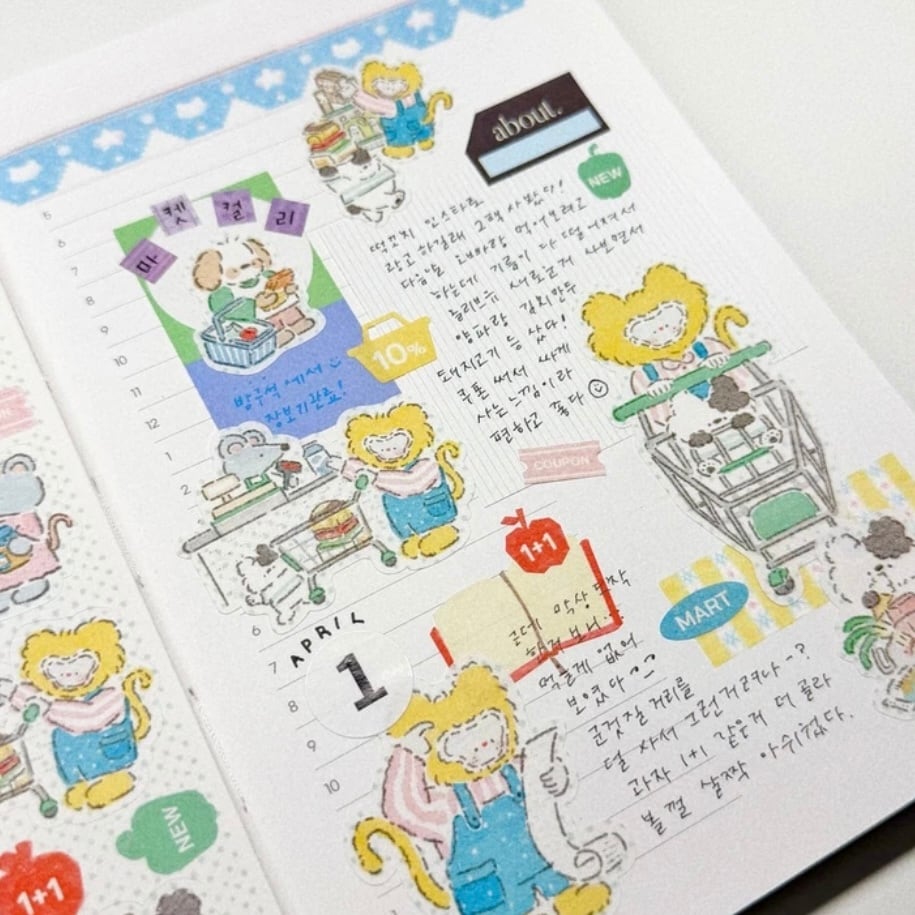 about.
NEW
마 켓 컬 리
10%
방구석에서
장보기완료!
인스타로
광고 하길래 사봤다!
다음날 오빠랑 먹어보려고
하는데 기름이 다 떨어져서
올리브유 새로운거 사보면서
양파랑 김치만두
돼지고기 등 샀다!
쿠폰 써서 싸게
사는 느낌이라
편하고 좋다
COUPON
5
6
7
8
9
10
11
12
1
2
6
7
8
9
10
APRIL
1
1+1
근데 막상 도착
한거 보니..
먹을게 없어
보였다
MART
군것질 거리를
덜 사서 그런거려나-?
과자 1+1 같은거 더 골라
볼껄 살짝 아쉬웠다.
NEW
1+1